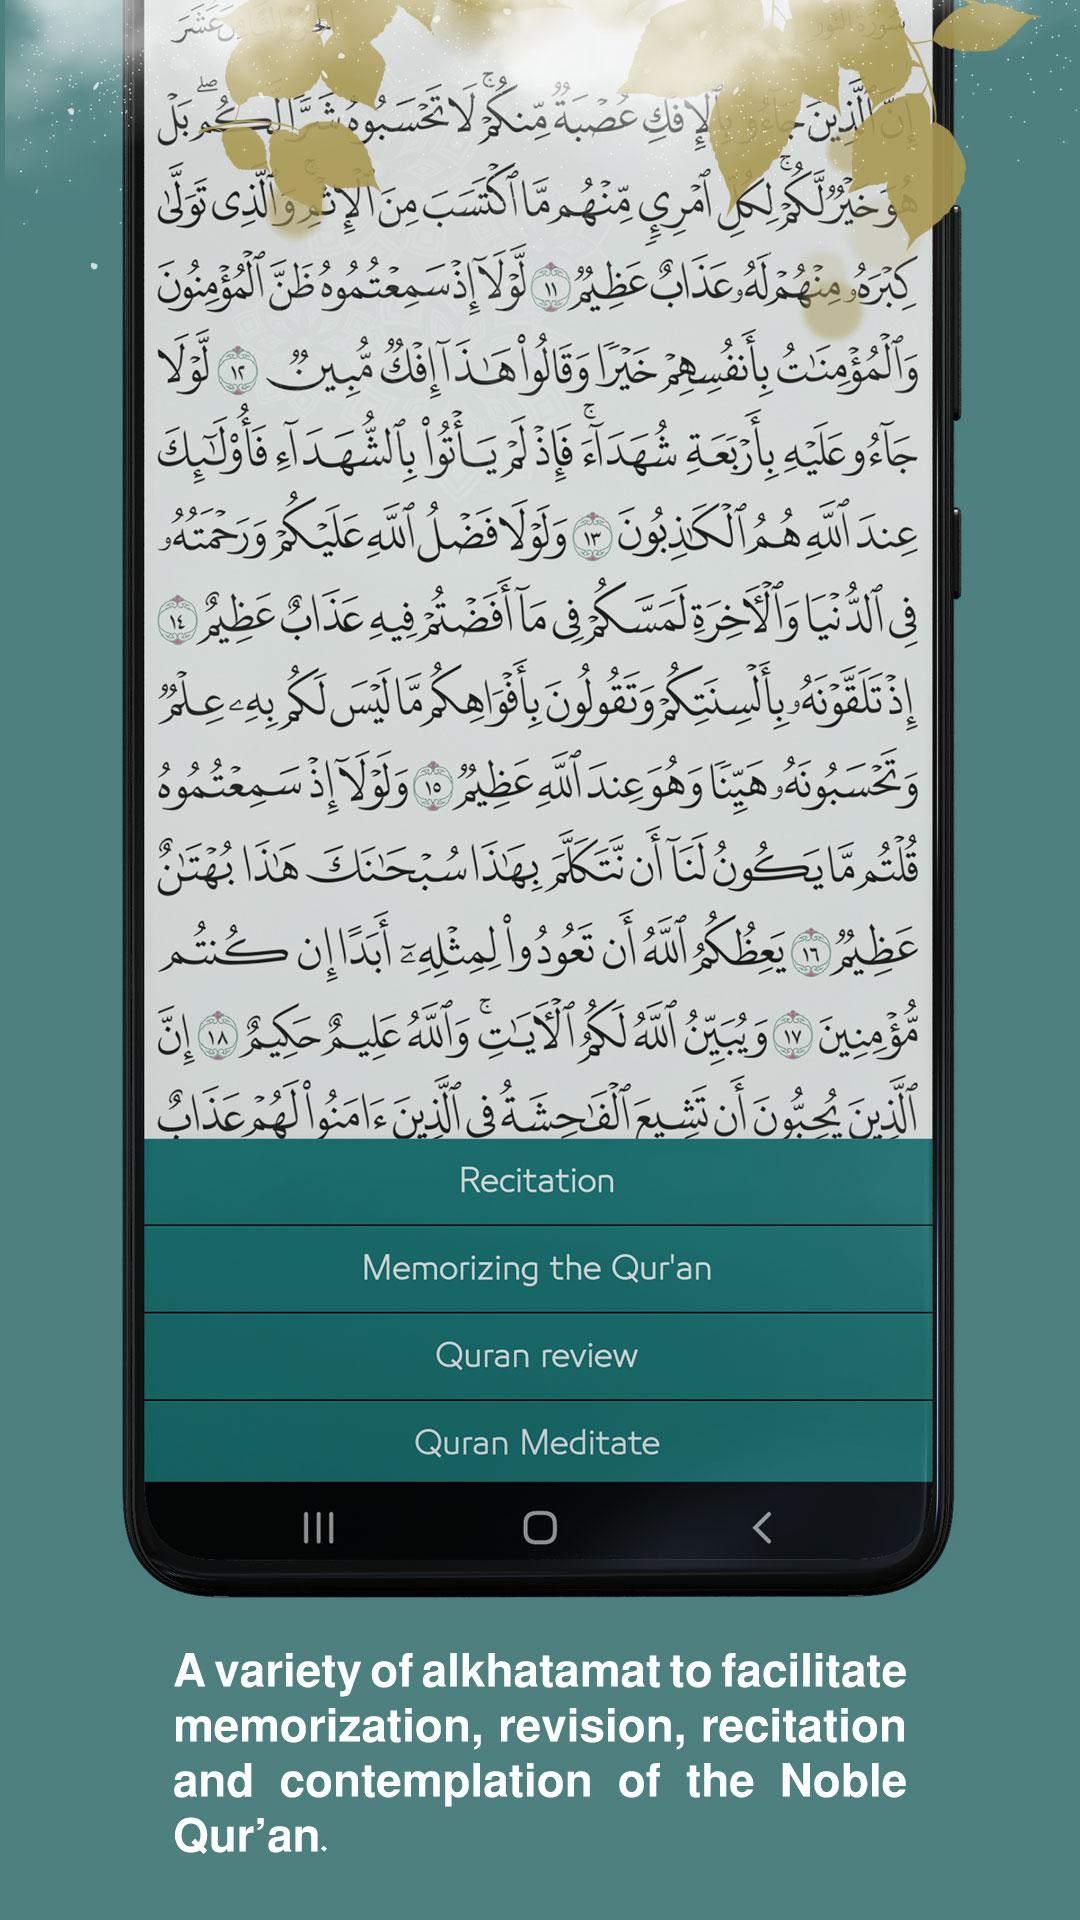 سورة النور
إِنَّ ٱلَّذِينَ جَآءُو بِٱلْإِفْكِ عُصْبَةٌ مِّنكُمْ ۚ لَا تَحْسَبُوهُ شَرًّا لَّكُم ۖ بَلْ
هُوَ خَيْرٌ لَّكُمْ ۚ لِكُلِّ ٱمْرِئٍ مِّنْهُم مَّا ٱكْتَسَبَ مِنَ ٱلْإِثْمِ ۚ وَٱلَّذِى تَوَلَّىٰ
كِبْرَهُۥ مِنْهُمْ لَهُۥ عَذَابٌ عَظِيمٌ ١١ لَّوْلَآ إِذْ سَمِعْتُمُوهُ ظَنَّ ٱلْمُؤْمِنُونَ
وَٱلْمُؤْمِنَٰتُ بِأَنفُسِهِمْ خَيْرًا وَقَالُوا۟ هَٰذَآ إِفْكٌ مُّبِينٌ ١٢ لَّوْلَا
جَآءُو عَلَيْهِ بِأَرْبَعَةِ شُهَدَآءَ ۚ فَإِذْ لَمْ يَأْتُوا۟ بِٱلشُّهَدَآءِ فَأُو۟لَٰٓئِكَ
عِندَ ٱللَّهِ هُمُ ٱلْكَٰذِبُونَ ١٣ وَلَوْلَا فَضْلُ ٱللَّهِ عَلَيْكُمْ وَرَحْمَتُهُۥ
فِى ٱلدُّنْيَا وَٱلْءَاخِرَةِ لَمَسَّكُمْ فِى مَآ أَفَضْتُمْ فِيهِ عَذَابٌ عَظِيمٌ ١٤
إِذْ تَلَقَّوْنَهُۥ بِأَلْسِنَتِكُمْ وَتَقُولُونَ بِأَفْوَاهِكُم مَّا لَيْسَ لَكُم بِهِۦ عِلْمٌ
وَتَحْسَبُونَهُۥ هَيِّنًا وَهُوَ عِندَ ٱللَّهِ عَظِيمٌ ١٥ وَلَوْلَآ إِذْ سَمِعْتُمُوهُ
قُلْتُم مَّا يَكُونُ لَنَآ أَن نَّتَكَلَّمَ بِهَٰذَا سُبْحَٰنَكَ هَٰذَا بُهْتَٰنٌ
عَظِيمٌ ١٦ يَعِظُكُمُ ٱللَّهُ أَن تَعُودُوا۟ لِمِثْلِهِۦٓ أَبَدًا إِن كُنتُم
مُّؤْمِنِينَ ١٧ وَيُبَيِّنُ ٱللَّهُ لَكُمُ ٱلْءَايَٰتِ ۚ وَٱللَّهُ عَلِيمٌ حَكِيمٌ ١٨ إِنَّ
ٱلَّذِينَ يُحِبُّونَ أَن تَشِيعَ ٱلْفَٰحِشَةُ فِى ٱلَّذِينَ ءَامَنُوا۟ لَهُمْ عَذَابٌ
Recitation
Memorizing the Qur'an
Quran review
Quran Meditate
A variety of alkhatamat to facilitate
memorization, revision, recitation
and contemplation of the Noble
Qur’an.